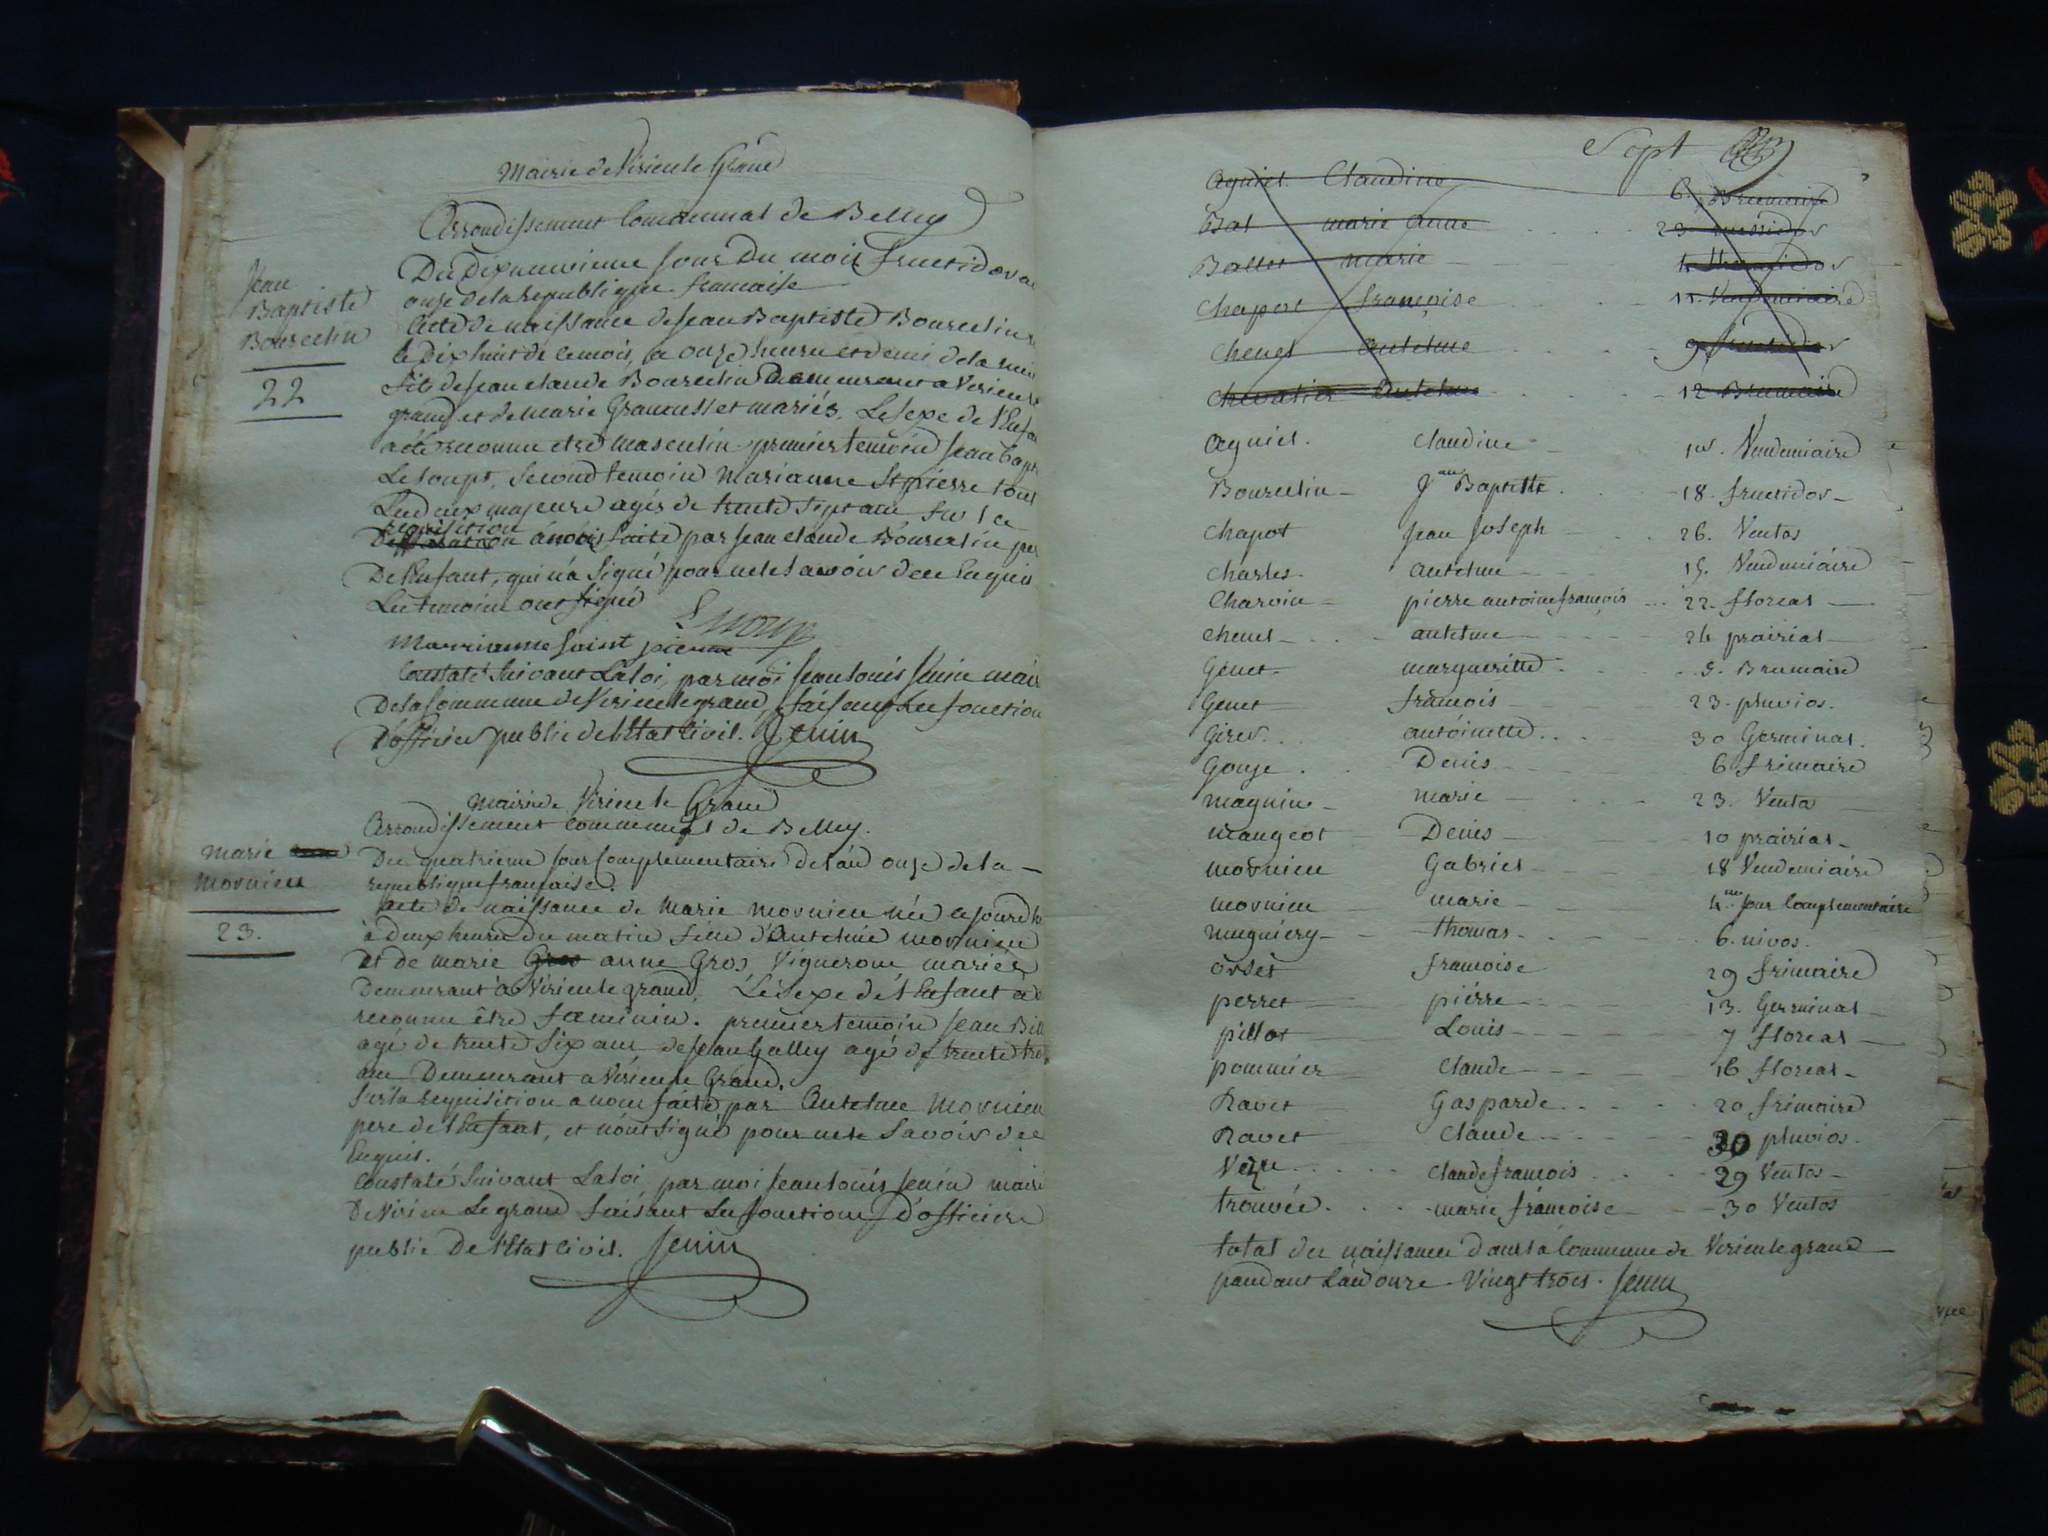 Mairie de Virieu le Grand
Arrondissement Communal de Belley
Jean
Baptiste
Bourcelin
22
Du Dixneuvieme jour Du mois fructidor an
onze de la republique francaise
Acte de naissance de Jean Baptiste Bourcelin
le dix huit de ce mois, a onze heures et demi de la
fils de Jean Claude Bourcelin Demeurant a Virieu le
grand et de Marie mariés. Le Sexe de l'Enfant
a été reconnu etre masculin. premier temoin Jean Bapt
Second temoin Marianne St pierre tous
Les deux majeurs agés de trente sept ans Sur la
requisition
à nous faite par Jean Claude Bourcelin per
De l'Enfant, qui n'a Signé pour ne le Savoir de ce Enquis
Les temoins ont signé
Marrianne Saint pierre
Constaté Suivant La loi, par moi Jean Louis Jenin mair
De la Commune de Virieu le grand, faisant Les fonction
D'officier public de l'Etat Civil. Jenin
Mairie de Virieu le Grand
Arrondissement Communal de Belley.
Marie
Mornieu
23.
Du quatrieme jour Complementaire de l'an onze de la
republique francaise.
Acte de naissance de Marie Mornieu née ce jourd'h
à Deux heures du matin fille d'Antelme Mornieu
et de Marie Gros anne Gros Vignerons mariés
Demeurant à Virieu le grand. Le Sexe de l'Enfant a
reconnu être fœminin. premier temoin Jean
agé de trente Six ans Jean Galley agé de trente
ans Demeurant a Virieu le Grand.
Sur la requisition a nous faite par Antelme Mornieu
pere de l'Enfant, et n'ont Signé pour ne le Savoir de ce
Enquis.
Constaté Suivant La loi par moi Jean Louis Jenin mair
De Virieu Le grand faisant Les fonctions D'officier
public De l'Etat Civil. Jenin
Sept
Agniel Claudine 6 Brumaire
Bal marie anne 23 messidor
Ballet marie 4 thermidor
Chapot françoise 11 Vendemiaire
Chenel Antelme 9 fructidor
Chevalier Antelme 12 Brumaire
Agniel. Claudine 1er Vendemiaire
Bourcelin Jean Baptiste 18. fructidor
Chapot Jean Joseph 26. Ventos
Charles Antelme 15. Vendemiaire
Charvin pierre antoine françois 22. floreal
Chenel antelme 24 prairial
Genet margueritte 5. Brumaire
Genet francois 23. pluvios.
Girer antoinette 30 Germinal.
Gouje Denis 6 frimaire
Magnin marie 23. Ventos
Maugeot Denis 10 prairial
mornieu Gabriel 18 Vendemiaire
mornieu marie 4me Jour Complementaire
mugniery thomas 6. nivos.
orset francoise 29 frimaire
perret pierre 13. Germinal
pillot Louis 7 floreal
pommier Claude 16 floreal
Ravet Gasparde 20 frimaire
Ravet Claude 30 pluvios.
Claude francois 29 Ventos
trouvée marie francoise 30 Ventos
total des naissances dans la Commune de Virieu le grand
pandant L'an onze. Vingt trois. Jenin